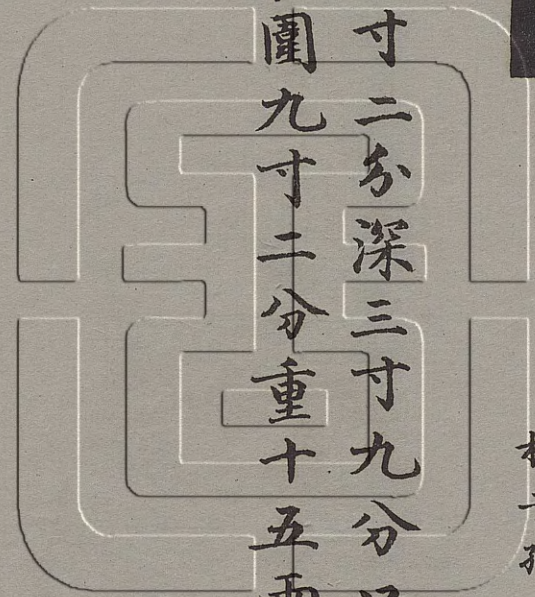 寸二分深三寸九分口
圍九寸二分重十五兩